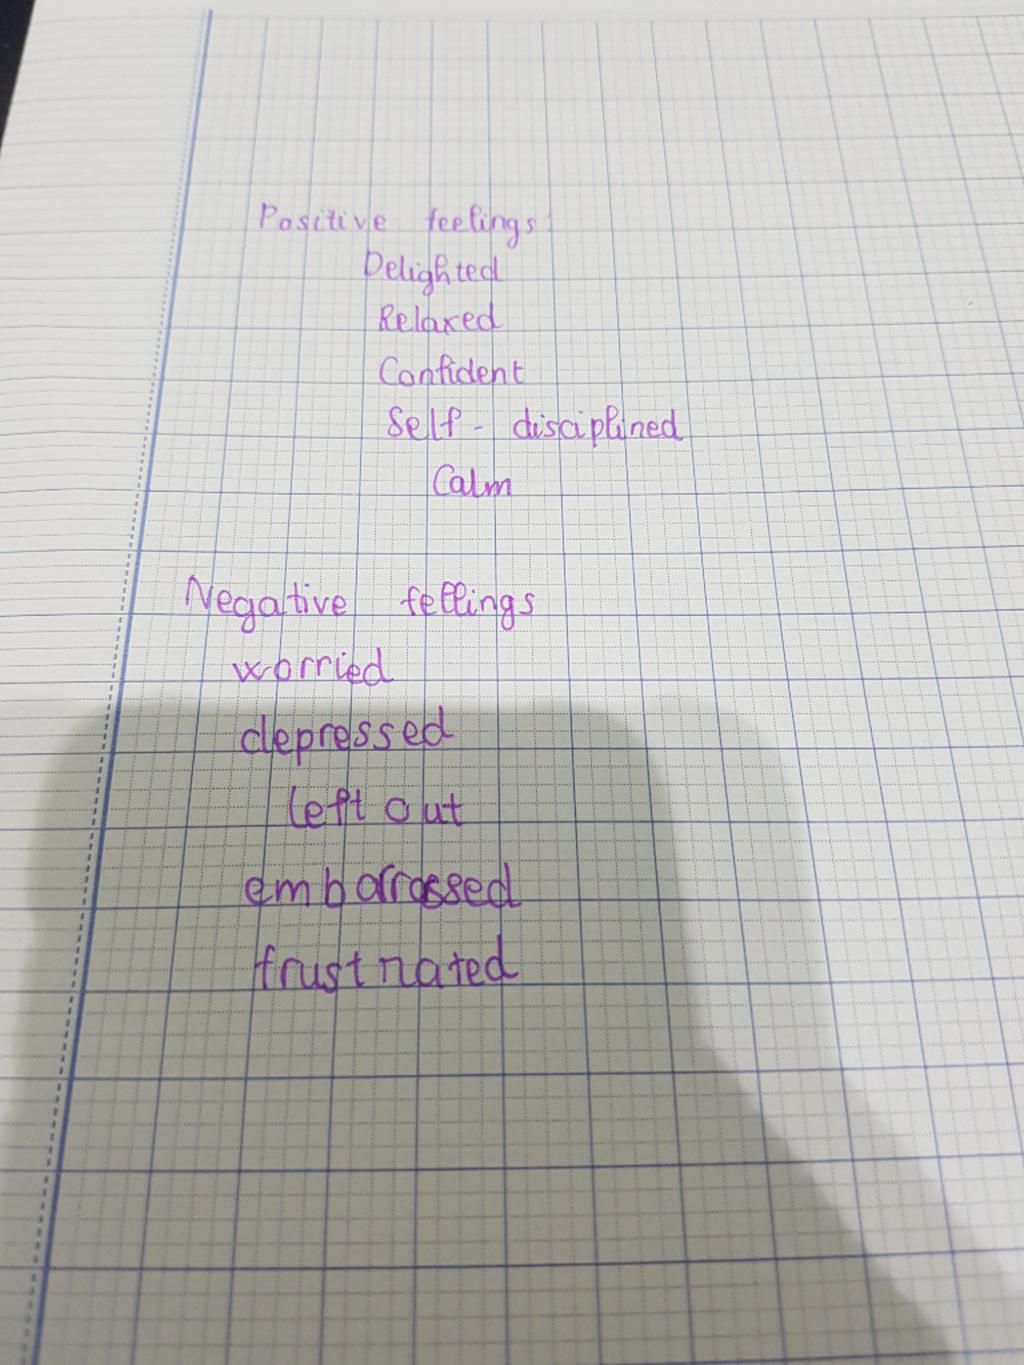 Positive feelings:
Delighted
Relaxed
Confident
Self - disciplined
Calm
Negative fellings
worried
depressed
left out
embarrassed
frustnated